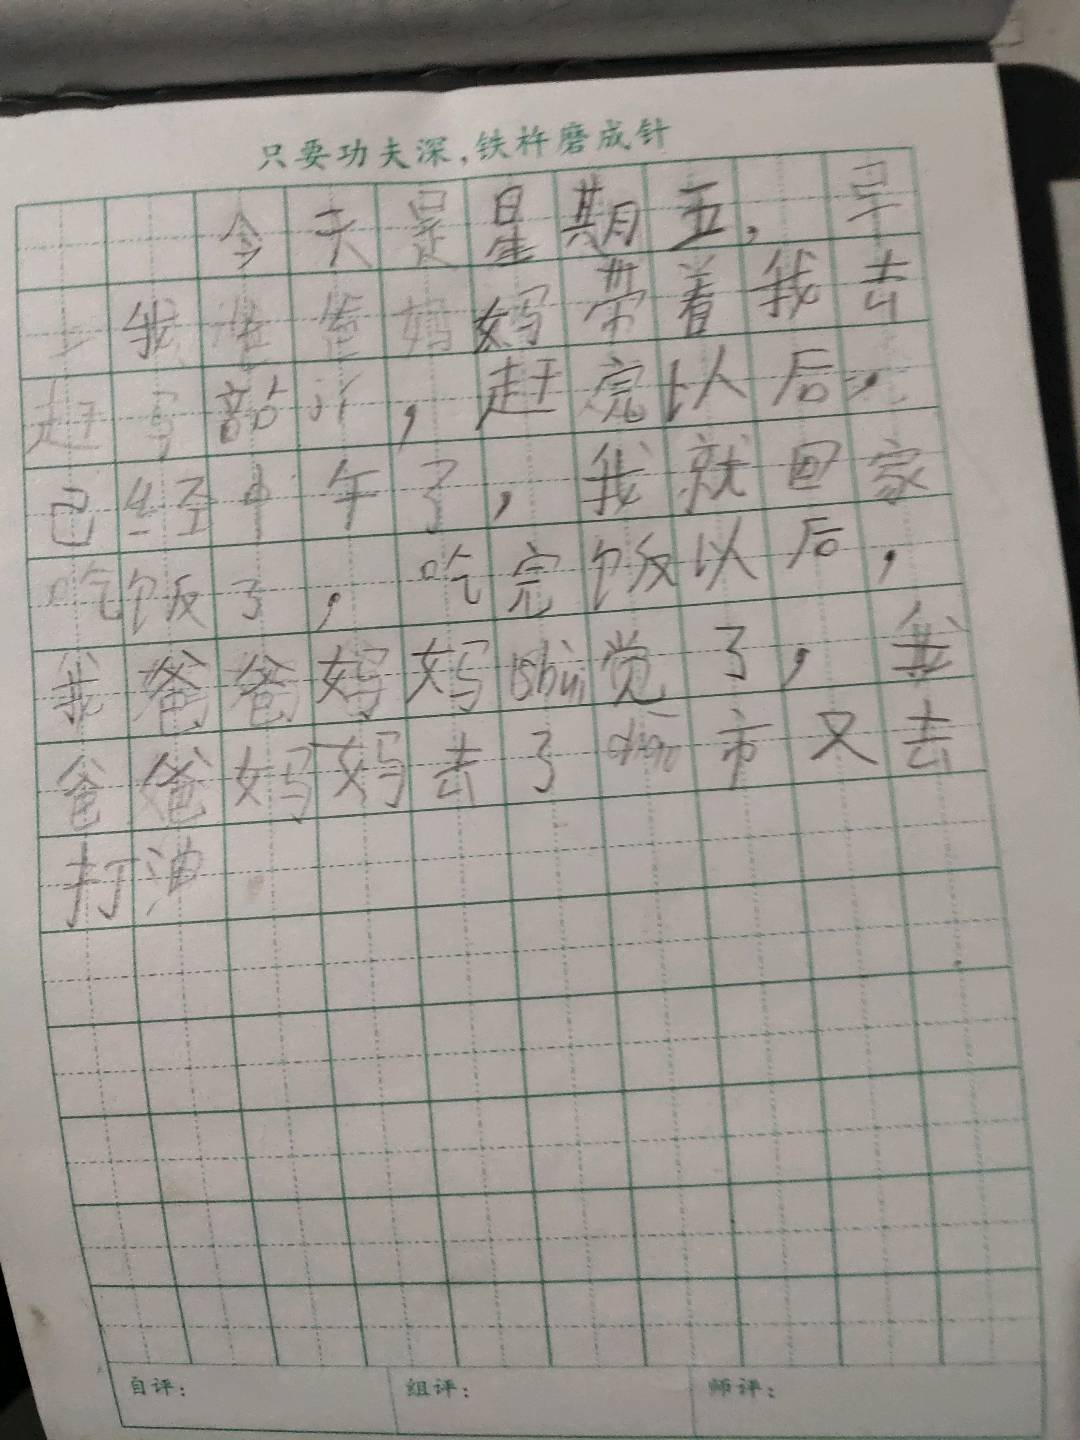 只要功夫深,铁杵磨成针
今天是星期五,早
上我爸爸妈妈带着我去
赶写部,赶完以后,
已经中午了,我就回家
吃饭了,吃完饭以后,
我爸爸妈妈shui觉了,我
爸爸妈妈去了市又去
打油
自评:
组评:
师评: